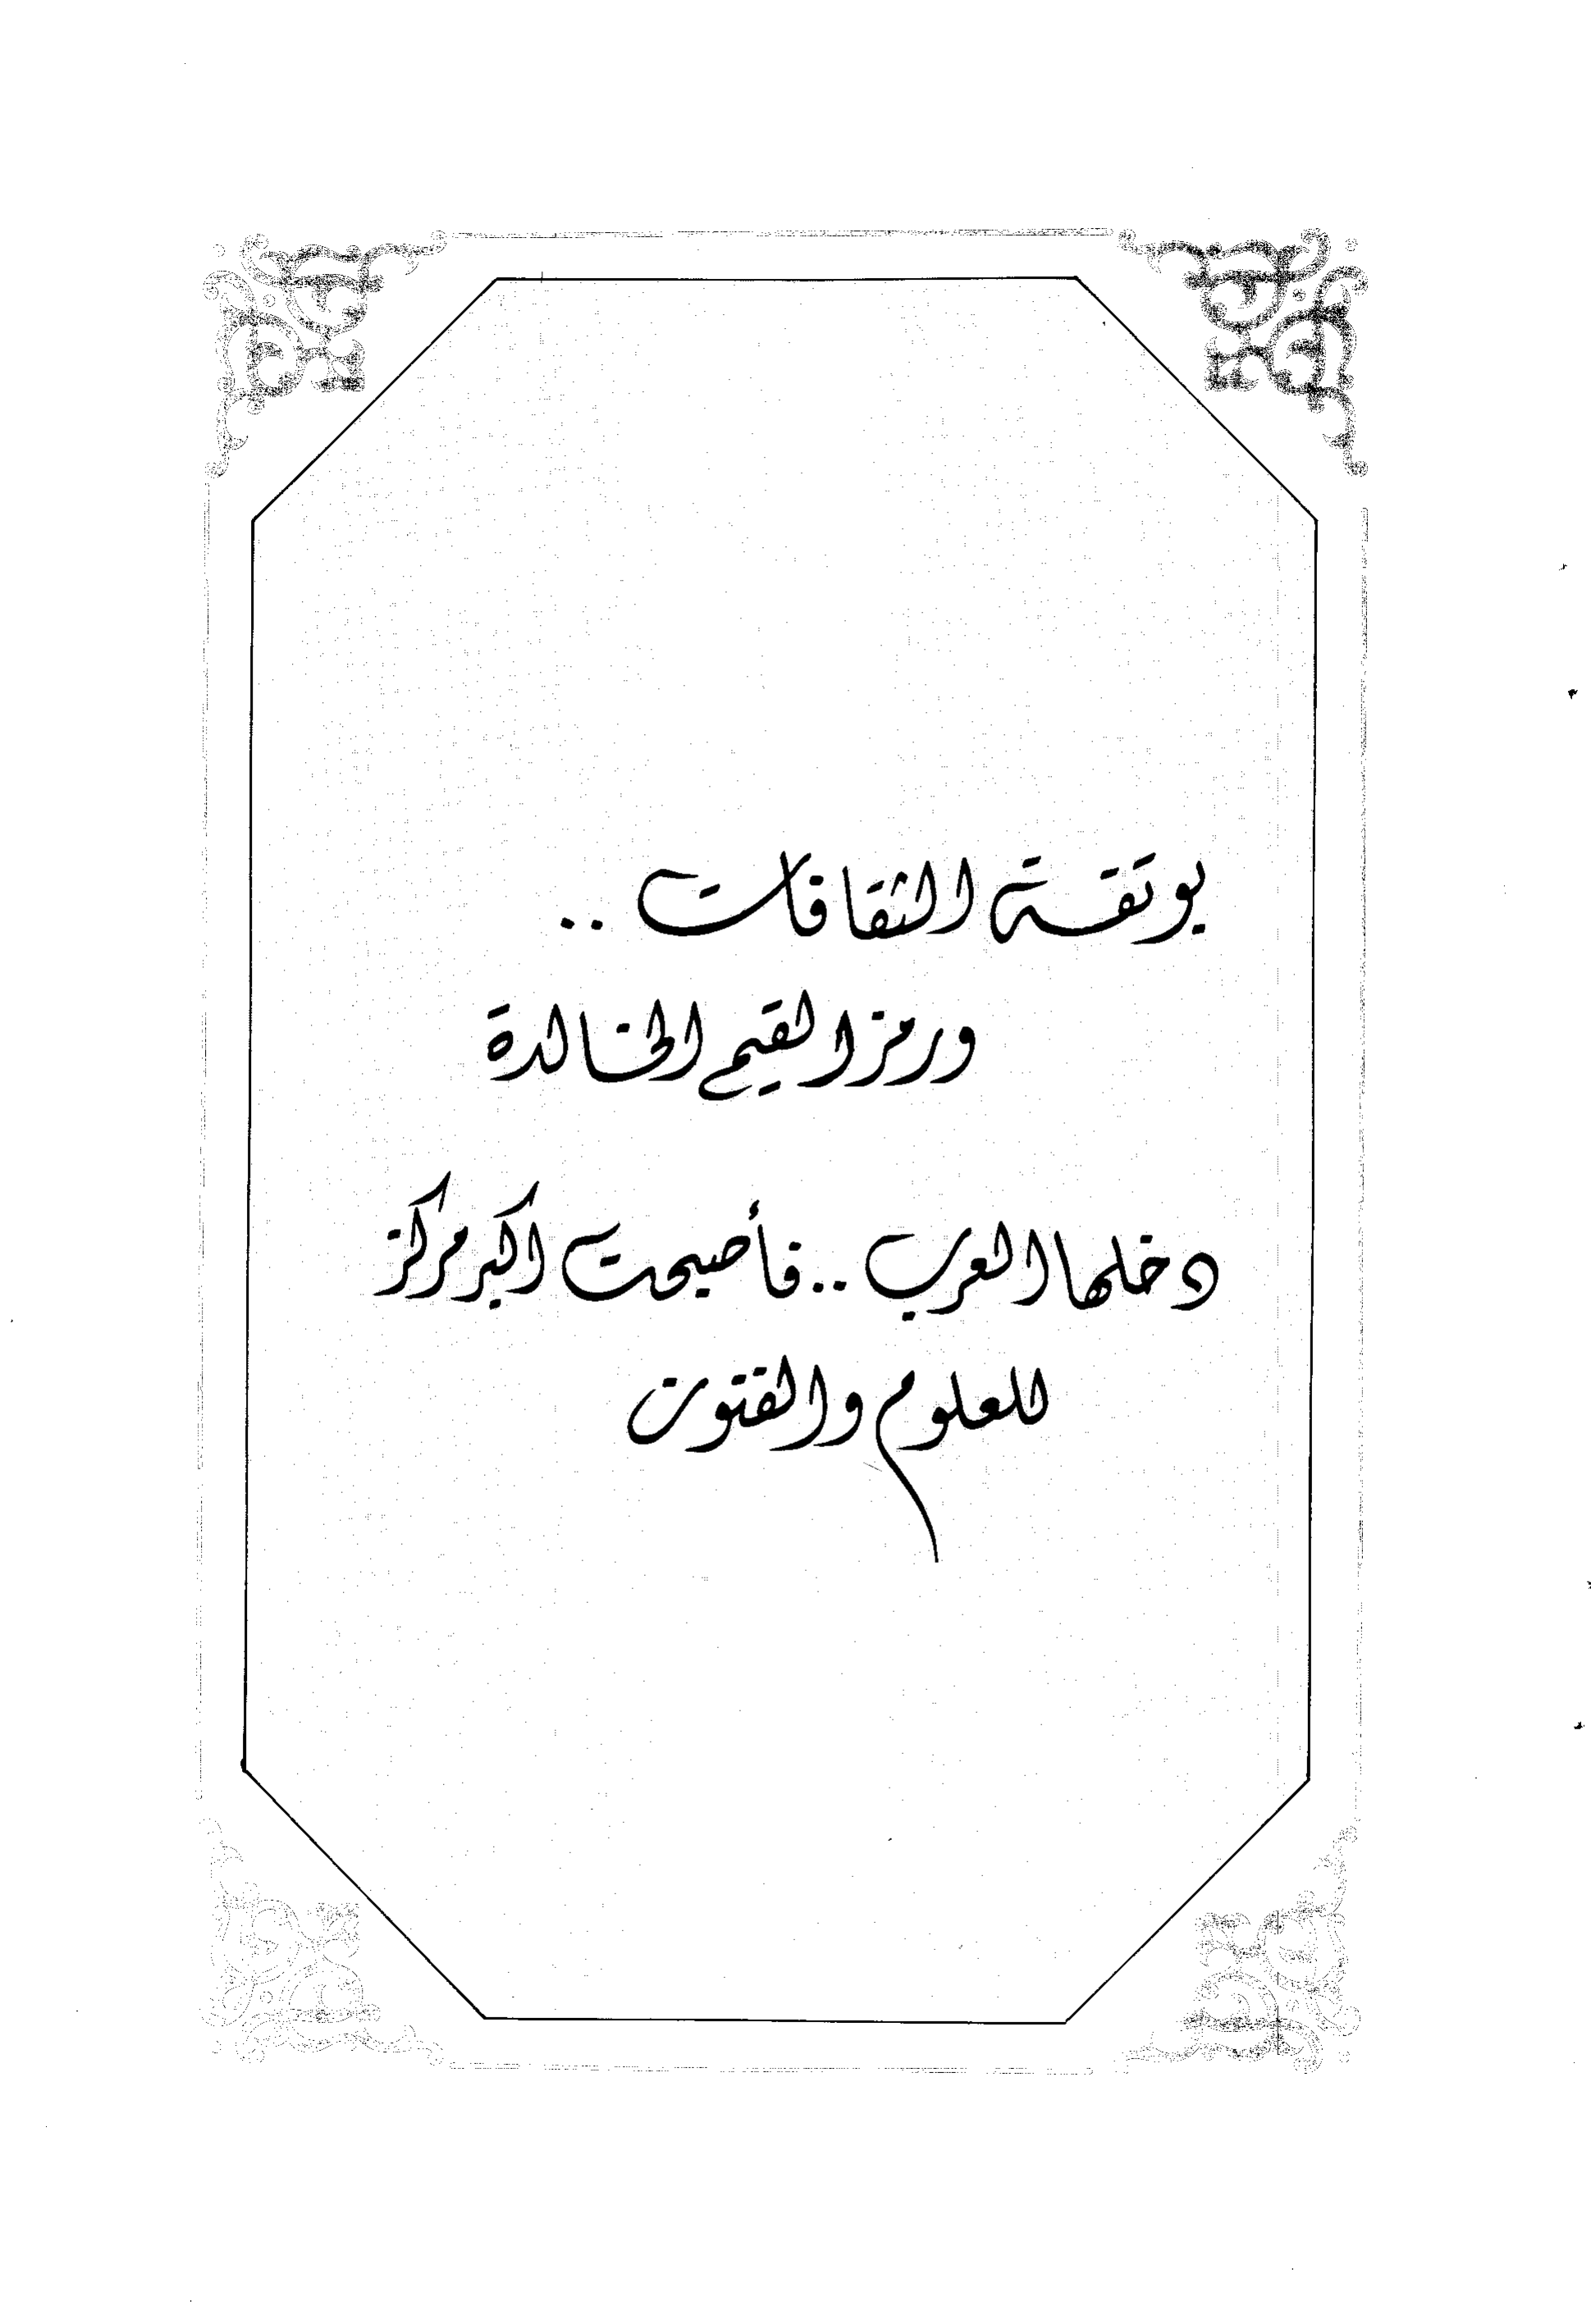 بوتقة الثقافات ..
ورمز القيم الخالدة
دخلها العرب .. فأصبحت اكبر مركز
للعلوم والفنون